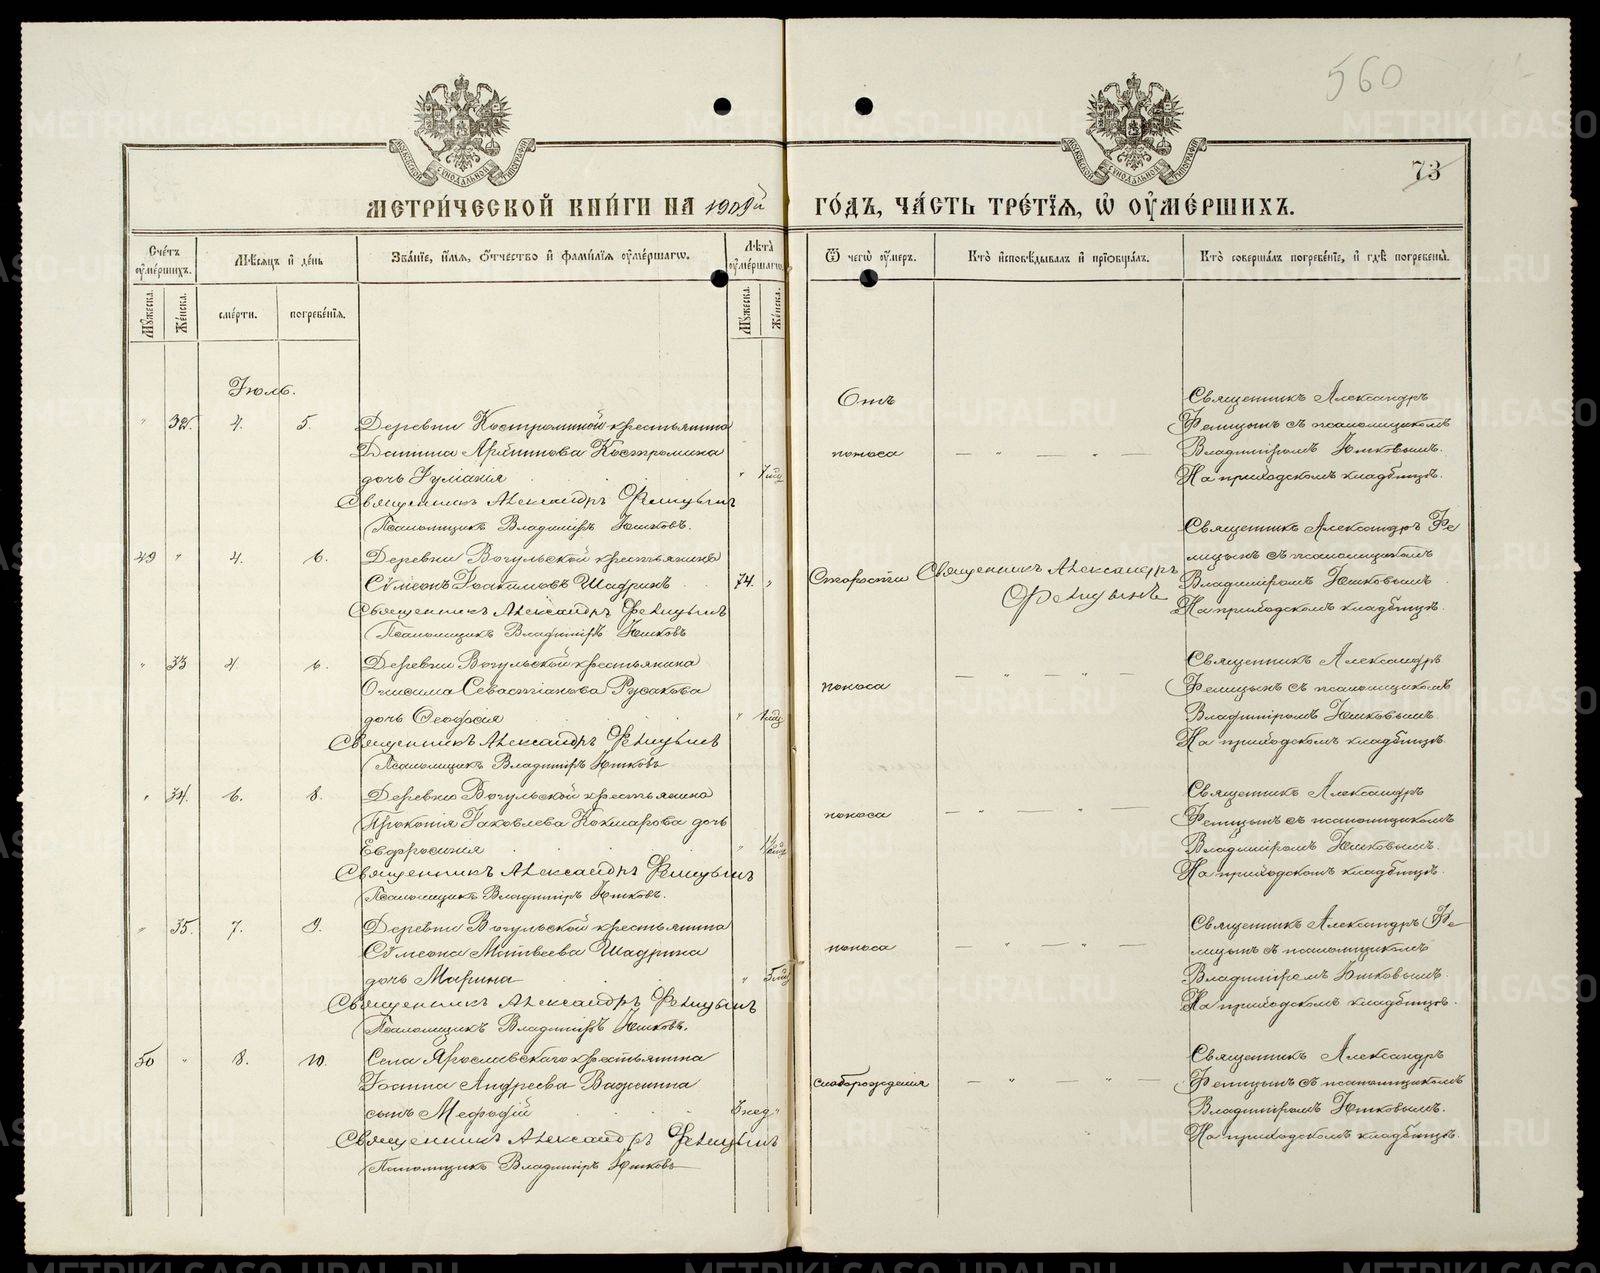 560
73
МОСКОВСКОЙ СѴНОДАЛЬНОЙ ТИПОГРАФІИ
МОСКОВСКОЙ СѴНОДАЛЬНОЙ ТИПОГРАФІИ
МЕТРИ́ЧЕСКОЙ КНИ́ГИ НА 1909й ГО́ДЪ, ЧА́СТЬ ТРЕ́ТІѦ, Ѡ҆ ОУ҆МЕ́РШИХЪ.
Сче́тъ оу҆ме́ршихъ.
Мѣ́сяцъ и҆ де́нь
Зва́ніе, и҆́мѧ, ѻ҆́тчество и҆ фами́лїѧ оу҆ме́ршагѡ.
Лѣ́та оу҆ме́ршагѡ.
Ѿ чегѡ̀ оу҆́меръ.
Кто̀ и҆сповѣ́дывалъ и҆ прїѡбща́лъ.
Кто̀ соверша́лъ погребе́нїе, и҆ гдѣ̀ погребены̀.
Мꙋ́жеска.
Же́нска.
сме́рти.
погребе́нїѧ.
Мꙋ́жеска.
Же́нска.
Іюль.
" 32. 4. 5. Деревни Костроминой крестьянина
Даніила Архиппова Костромина
дочь Іуліанія " 7 мѣс
Священникъ Александръ Фелицынъ
Псаломщикъ Владиміръ Юшковъ.
Отъ
поноса
— " — " —
Священникъ Александръ
Фелицынъ съ псаломщикомъ
Владиміромъ Юшковымъ.
На приходскомъ кладбищѣ.
49 " 4. 6. Деревни Вогульской крестьянинъ
Сѵмеонъ Іоакимовъ Шадринъ 74. "
Священникъ Александръ Фелицынъ
Псаломщикъ Владиміръ Юшковъ
Старости
Священникъ Александръ
Фелицынъ
Священникъ Александръ Фе
лицынъ съ псаломщикомъ
Владиміромъ Юшковымъ
На приходскомъ кладбищѣ.
" 33 4. 6. Деревни Вогульской крестьянина
Онисима Севастіанова Русакова
дочь Ѳеодосія " 1 мѣс
Священникъ Александръ Фелицынъ
Псаломщикъ Владиміръ Юшковъ
поноса
— " — " —
Священникъ Александръ
Фелицынъ съ псаломщикомъ
Владиміромъ Юшковымъ.
На приходскомъ кладбищѣ.
" 34. 6. 8. Деревни Вогульской крестьянина
Прокопія Іаковлева Кокшарова дочь
Евфросинія "
Священникъ Александръ Фелицынъ
Псаломщикъ Владиміръ Юшковъ.
поноса
— " — " —
Священникъ Александръ
Фелицынъ съ псаломщикомъ
Владиміромъ Юшковымъ.
На приходскомъ кладбищѣ.
" 35. 7. 9. Деревни Вогульской крестьянина
Сѵмеона Матвеева Шадрина
дочь Марина " 5 мѣс
Священникъ Александръ Фелицынъ
Псаломщикъ Владиміръ Юшковъ.
поноса
— " — " —
Священникъ Александръ Фе—
лицынъ съ псаломщикомъ
Владиміромъ Юшковымъ.
На приходскомъ кладбищѣ.
50 " 8. 10. Села Ярославскаго крестьянина
Іоанна Андреева Важенина
сынъ Меѳодій 3 нед. "
Священникъ Александръ Фелицынъ
Псаломщикъ Владиміръ Юшковъ
слаборожденія
— " — " —
Священникъ Александръ
Фелицынъ съ псаломщикомъ
Владиміромъ Юшковымъ.
На приходскомъ кладбищѣ.
METRIKI.GASO-URAL.RU